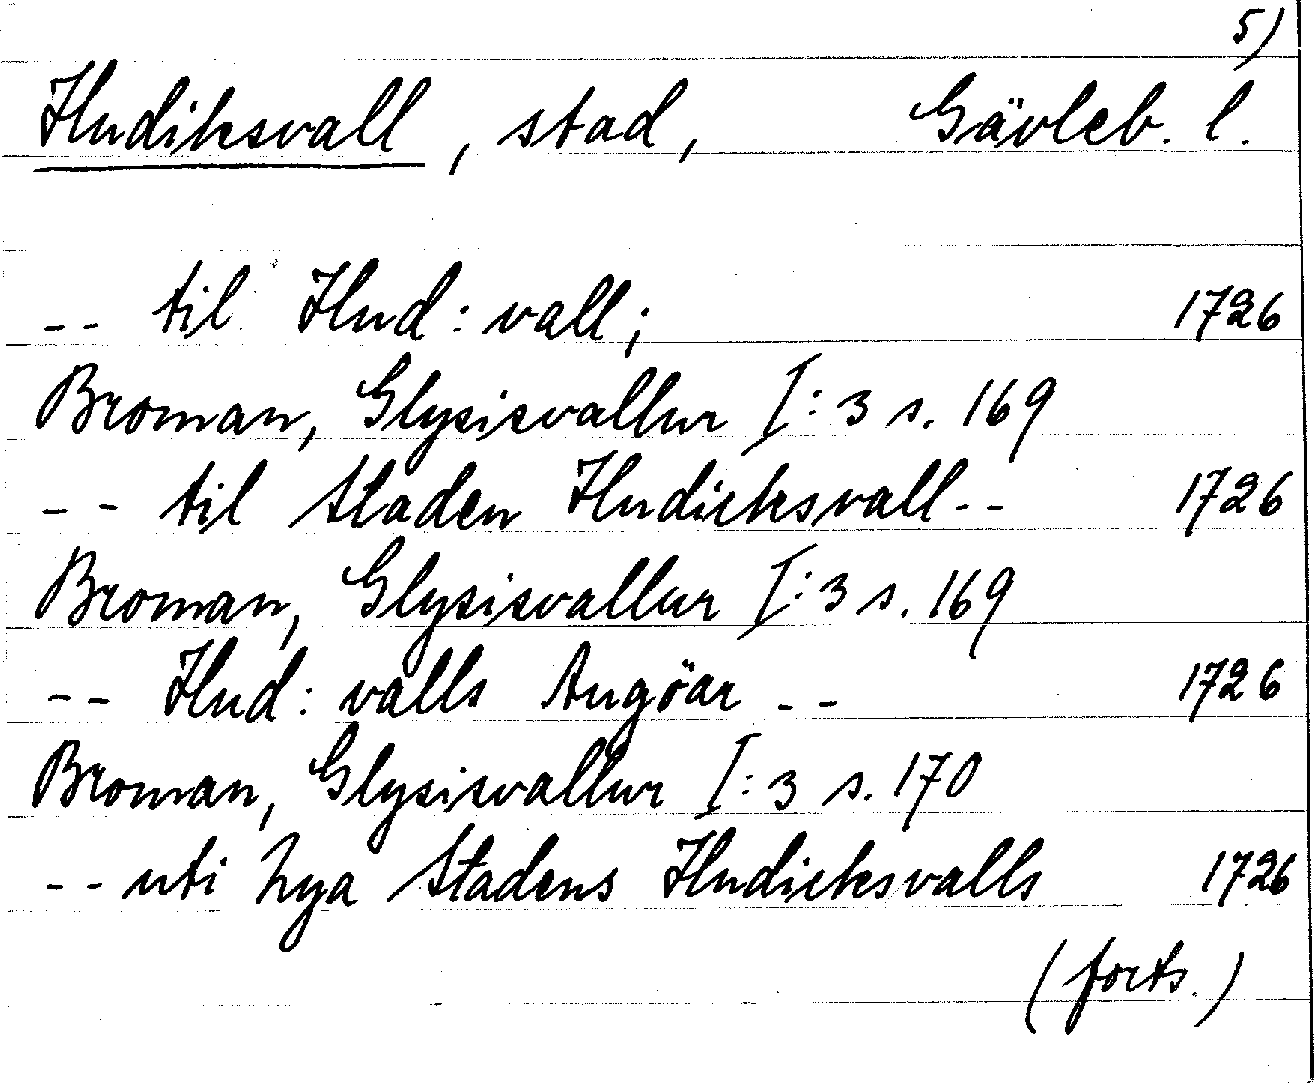 5)
Hudiksvall, stad, Gävleb. l.
-- til Hud: vall; 1726
Broman, Glysisvallur I:3 s. 169
-- til Staden Hudicksvall-- 1726
Broman, Glysisvallur I:3 s. 169
-- Hud: valls Tungöar -- 1726
Broman, Glysisvallur I:3 s. 170
-- uti nya Stadens Hudicksvalls 1726
(forts.)